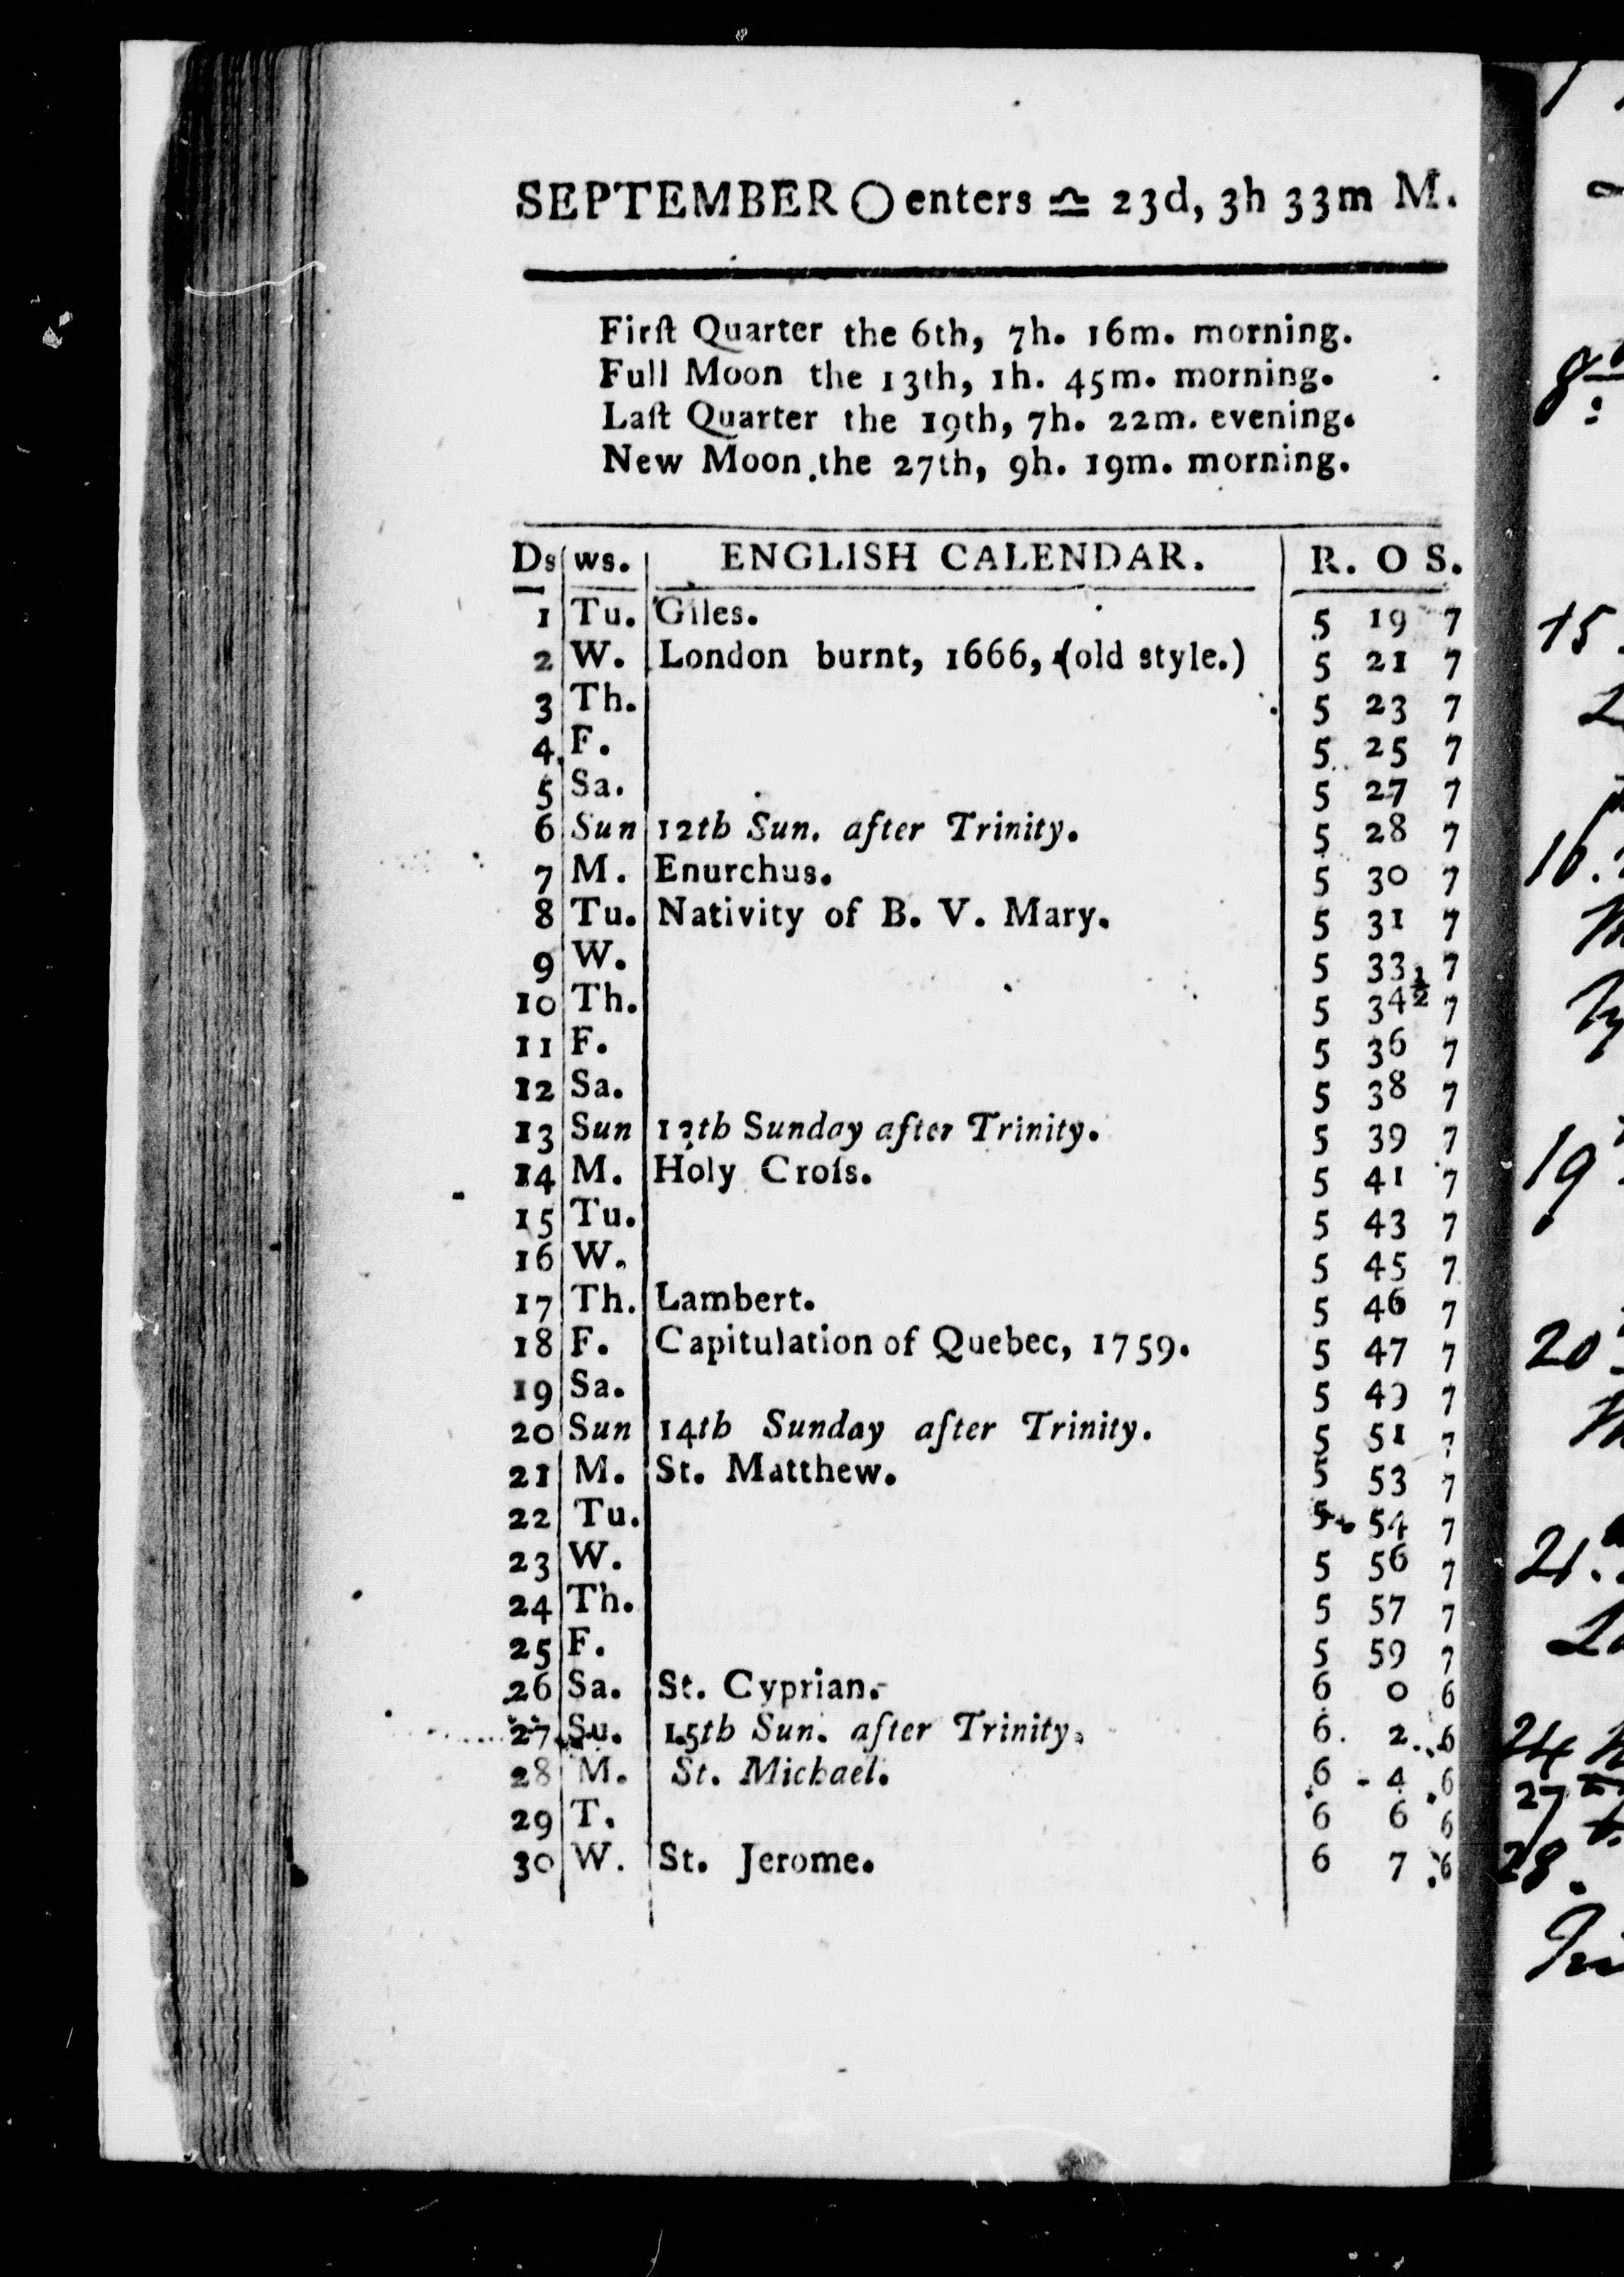 SEPTEMBER ◯ enters ♎ 23d, 3h 33m M.
Firſt Quarter the 6th, 7h. 16m. morning.
Full Moon the 13th, 1h. 45m. morning.
Laſt Quarter the 19th, 7h. 22m. evening.
New Moon the 27th, 9h. 19m. morning.
Ds ws. ENGLISH CALENDAR. R. O S.
1 Tu. Giles. 5 19 7
2 W. London burnt, 1666, (old style.) 5 21 7
3 Th. 5 23 7
4 F. 5 25 7
5 Sa. 5 27 7
6 Sun 12th Sun. after Trinity. 5 28 7
7 M. Enurchus. 5 30 7
8 Tu. Nativity of B. V. Mary. 5 31 7
9 W. 5 33 7
10 Th. 5 34½ 7
11 F. 5 36 7
12 Sa. 5 38 7
13 Sun 13th Sunday after Trinity. 5 39 7
14 M. Holy Croſs. 5 41 7
15 Tu. 5 43 7
16 W. 5 45 7
17 Th. Lambert. 5 46 7
18 F. Capitulation of Quebec, 1759. 5 47 7
19 Sa. 5 49 7
20 Sun 14th Sunday after Trinity. 5 51 7
21 M. St. Matthew. 5 53 7
22 Tu. 5 54 7
23 W. 5 56 7
24 Th. 5 57 7
25 F. 5 59 7
26 Sa. St. Cyprian. 6 0 6
27 Su. 15th Sun. after Trinity. 6 2 6
28 M. St. Michael. 6 4 6
29 T. 6 6 6
30 W. St. Jerome. 6 7 6
15
19
20
21.
24
27
28.